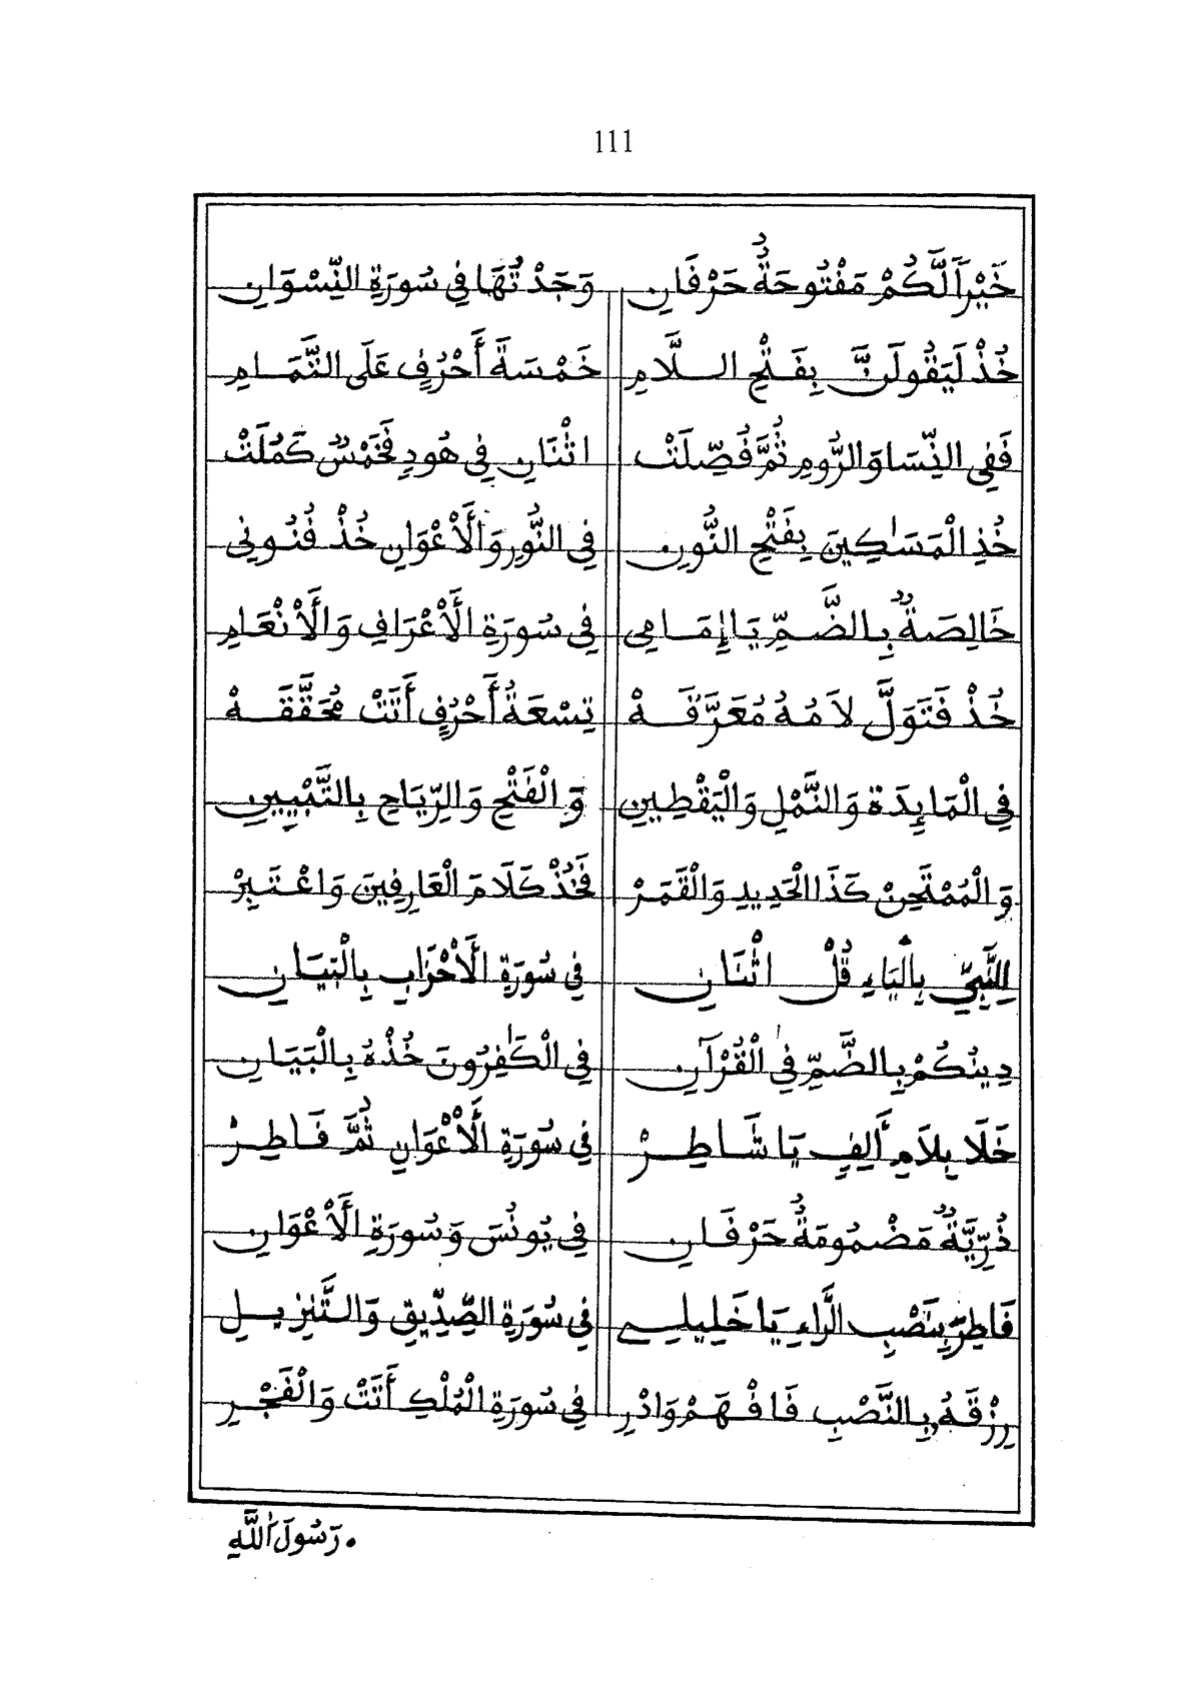 111
خَيْراً لَّكُمْ مَفْتُوحَةٌ حَرْفَانِ وَجَدْتُهَا فِي سُورَةِ النِّسْوَانِ
خُذْ لَيَقُولَنَّ بِفَتْحِ السلَّامِ خَمْسَةَ أَحْرُفٍ عَلَى التَّمَامِ
فَفِي النِّسَا وَالرُّومِ ثُمَّ فُصِّلَتْ اثْنَانِ فِي هُودٍ فَخَمْسٌ كَمُلَتْ
خُذِ الْمَسَٰكِينَ بِفَتْحِ النُّونِ فِي النُّورِ وَالْأَعْوَانِ خُذْ فُنُونِي
خَالِصَةٌ بِالضَّمِّ يَا إِمَامِي فِي سُورَةِ الْأَعْرَافِ وَالْأَنْعَامِ
خُذْ فَتَوَلَّ لَامُهُ مُعَرَّقَهْ تِسْعَةُ أَحْرُفٍ أَتَتْ مُحَقَّقَهْ
فِي الْمَايِدَةِ وَالنَّمْلِ وَالْيَقْطِينِ وَالْفَتْحِ وَالرِّيَاحِ بِالتَّبْيِينِ
وَالْمُمْتَحِنْ كَذَا الْحَدِيدِ وَالْقَمَرْ فَخُذْ كَلَامَ الْعَارِفِينَ وَاعْتَبِرْ
لِلنَّبِيِّ بِالْيَاءِ قُلْ اثْنَانِ فِي سُورَةِ الْأَحْزَابِ بِالْبَيَانِ
دِينُكُمْ بِالضَّمِّ فِي الْقُرْآنِ فِي الْكَٰفِرُونَ خُذْهُ بِالْبَيَانِ
خَلَا بِلَامِ أَلِفٍ يَا شَاطِرْ فِي سُورَةِ الْأَعْوَانِ ثُمَّ فَاطِرْ
ذُرِّيَّةٌ مَضْمُومَةٌ حَرْفَانِ فِي يُونُسَ وَسُورَةِ الْأَعْوَانِ
فَاطِرَ بِنَصْبِ الرَّاءِ يَا خَلِيلِي فِي سُورَةِ الصِّدِّيقِ وَالتَّنْزِيلِ
رِزْقَهُ بِالنَّصْبِ فَافْهَمْ وَادْرِ فِي سُورَةِ الْمُلْكِ أَتَتْ وَالْفَجْرِ
• رَسُولَ اللَّهِ